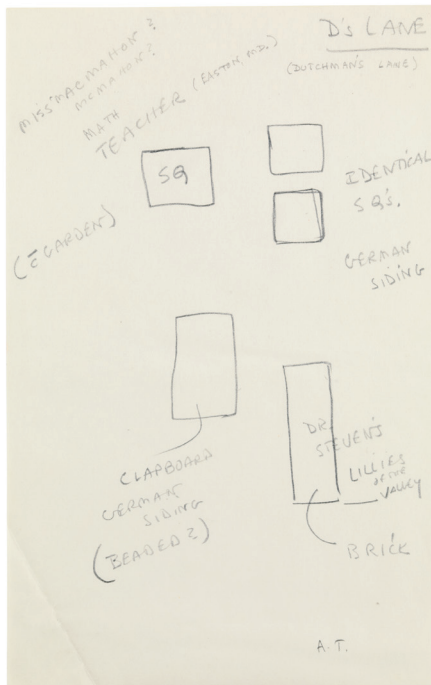 D'S LANE
(DUTCHMAN'S LANE)
MISS MACMAHON?
MCMAHON?
MATH
TEACHER (EASTON, MD.)
SQ
IDENTICAL
SQ'S.
(c̄ GARDEN)
GERMAN
SIDING
DR.
STEVEN'S
LILLIES
OF THE
VALLEY
CLAPBOARD
GERMAN
SIDING
(BEADED?)
BRICK
A.T.